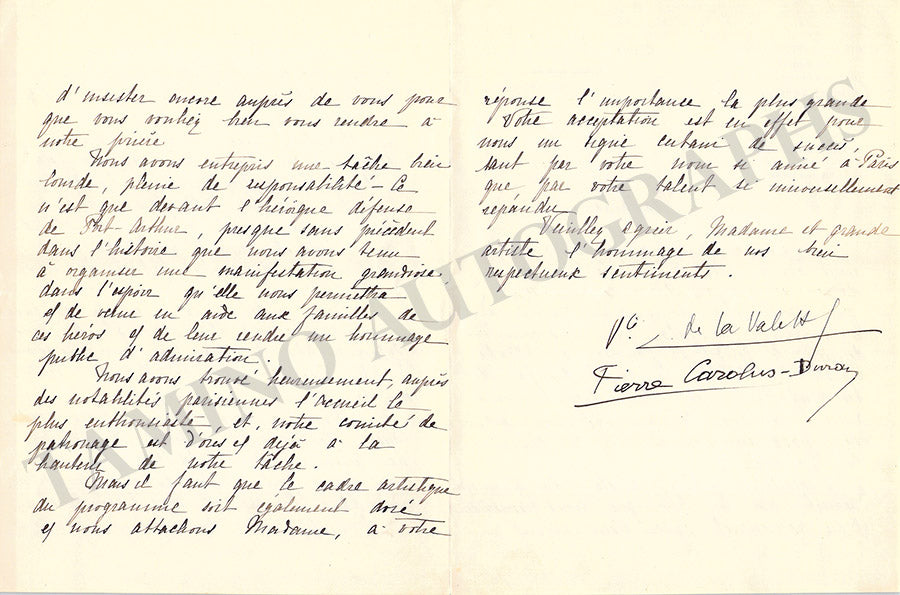 d'insister encore auprès de vous pour
que vous vouliez bien vous rendre à
notre prière
Nous avons entrepris une tâche bien
lourde, pleine de responsabilité - Ce
n'est que devant l'héroïque défense
de Port-Arthur, presque sans précédent
dans l'histoire que nous avons tenu
à organiser une manifestation grandiose
dans l'espoir qu'elle nous permettra
et de venir en aide aux familles de
ces héros et de leur rendre un hommage
public d'admiration.
Nous avons trouvé heureusement, auprès
des notabilités parisiennes l'accueil le
plus enthousiaste et, notre comité de
patronage est d'ores et déjà à la
hauteur de notre tâche.
Mais il faut que le cadre artistique
du programme soit également doré
et nous attachons Madame, à votre
réponse l'importance la plus grande
Votre acceptation est en effet pour
nous un signe certain de succès,
tant par votre nom si aimé à Paris
que par votre talent si
répandu
Veuillez agréer, Madame et grande
artiste l'hommage de nos bien
respectueux sentiments.
Vte de la Valette
Pierre Carolus-Duran
TAMINO AUTOGRAPHS